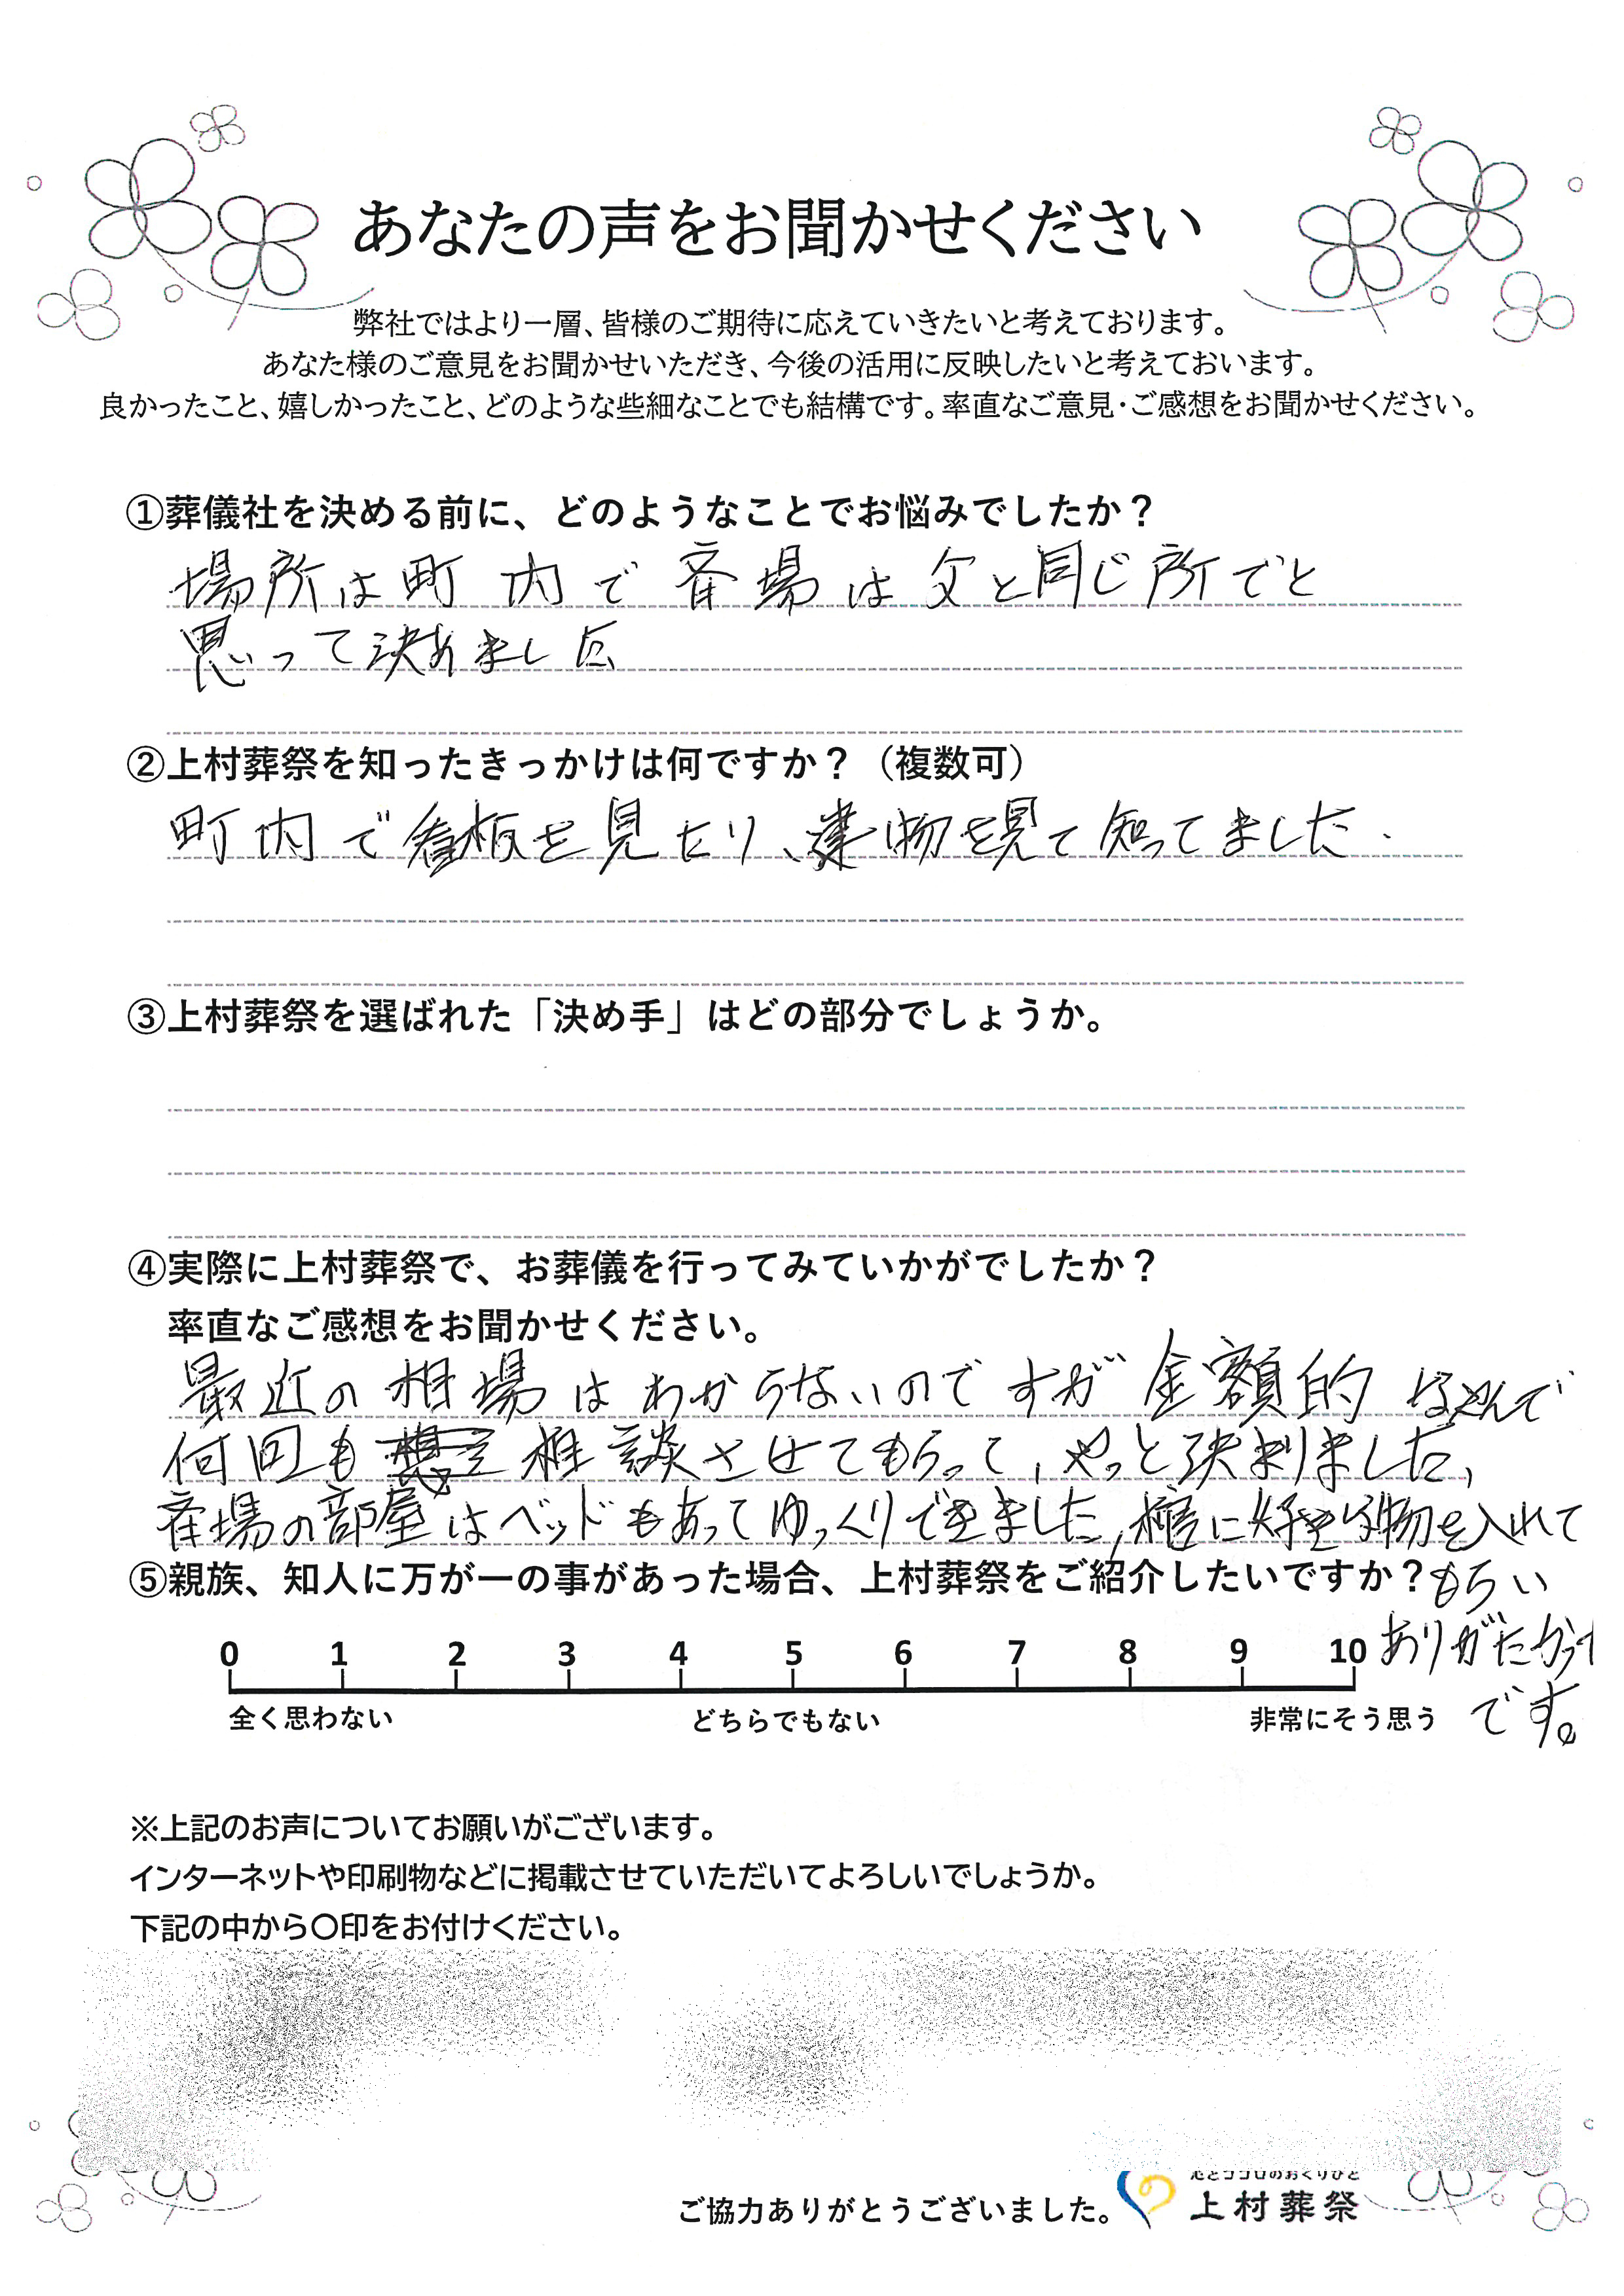 あなたの声をお聞かせください
弊社ではより一層、皆様のご期待に応えていきたいと考えております。
あなた様のご意見をお聞かせいただき、今後の活用に反映したいと考えておいます。
良かったこと、嬉しかったこと、どのような些細なことでも結構です。率直なご意見・ご感想をお聞かせください。
①葬儀社を決める前に、どのようなことでお悩みでしたか？
場所は町内で斉場は父と同じ所でと
思って決めました
②上村葬祭を知ったきっかけは何ですか？（複数可）
町内で看板を見たり、建物を見て知ってました.
③上村葬祭を選ばれた「決め手」はどの部分でしょうか。
④実際に上村葬祭で、お葬儀を行ってみていかがでしたか？
率直なご感想をお聞かせください。
最近の相場はわからないのですが金額的なもんで
何回も相談させてもらって、やっと決まりました、
斉場の部屋はベッドもあってゆっくりできました、棺に好きな物を入れて
⑤親族、知人に万が一の事があった場合、上村葬祭をご紹介したいですか？もらい
0 1 2 3 4 5 6 7 8 9 10 ありがたかった
全く思わない どちらでもない 非常にそう思う です。
※上記のお声についてお願いがございます。
インターネットや印刷物などに掲載させていただいてよろしいでしょうか。
下記の中から〇印をお付けください。
心とココロのおくりびと
ご協力ありがとうございました。 上村葬祭